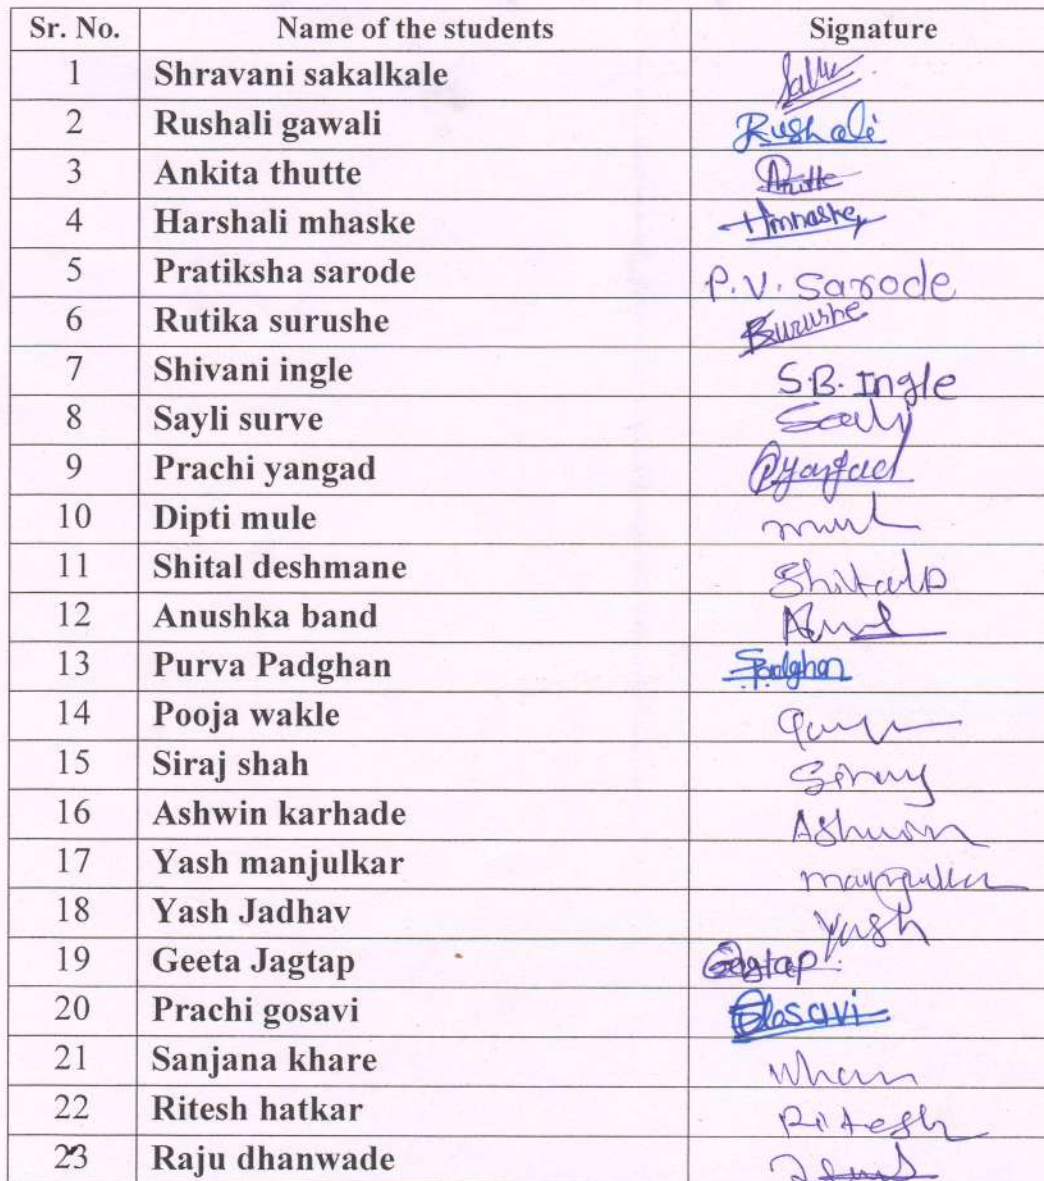 Sr. No. Name of the students Signature
1 Shravani sakalkale
2 Rushali gawali Rushali
3 Ankita thutte Thutte
4 Harshali mhaske Hmhaske
5 Pratiksha sarode P.V. Sarode
6 Rutika surushe Surushe
7 Shivani ingle S.B. Ingle
8 Sayli surve
9 Prachi yangad Pyangad
10 Dipti mule
11 Shital deshmane ShitalD
12 Anushka band
13 Purva Padghan Padghan
14 Pooja wakle
15 Siraj shah
16 Ashwin karhade Ashwin
17 Yash manjulkar
18 Yash Jadhav Yash
19 Geeta Jagtap
20 Prachi gosavi Gosavi
21 Sanjana khare
22 Ritesh hatkar Ritesh
23 Raju dhanwade